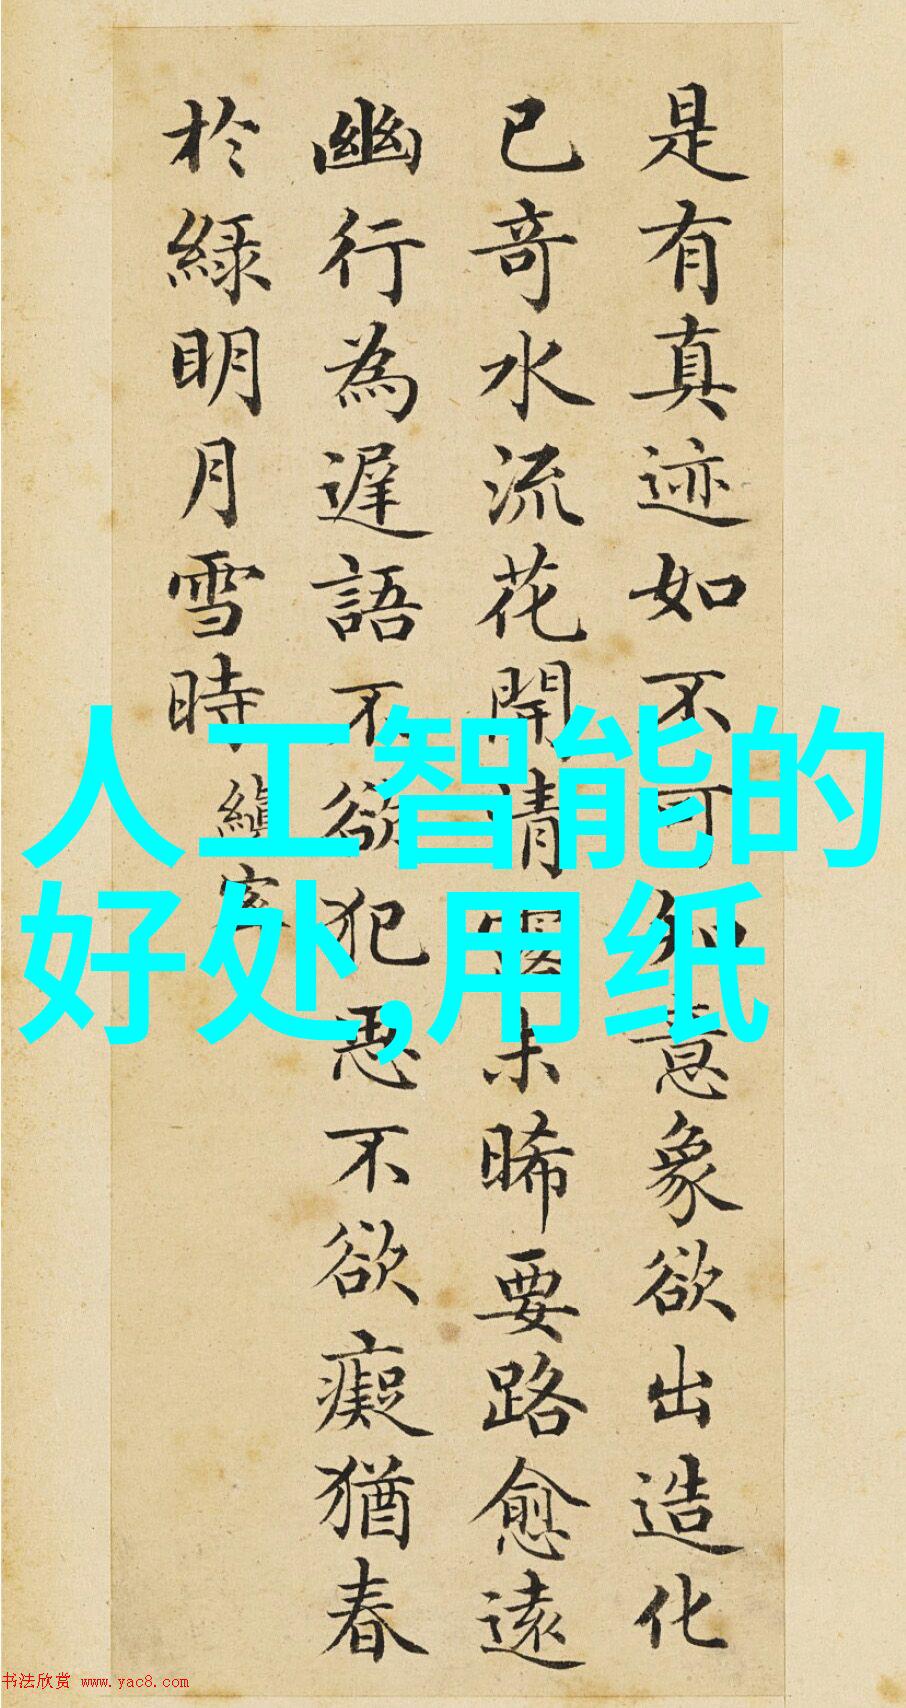 是有真迹如不可知意象欲出造化
已奇水流花開清露未晞要路愈遠
幽行為遲語不欲犯思不欲癡猶春
於綠明月雪時
人工智能的
好处,用纸
书法欣赏 www.yac8.com